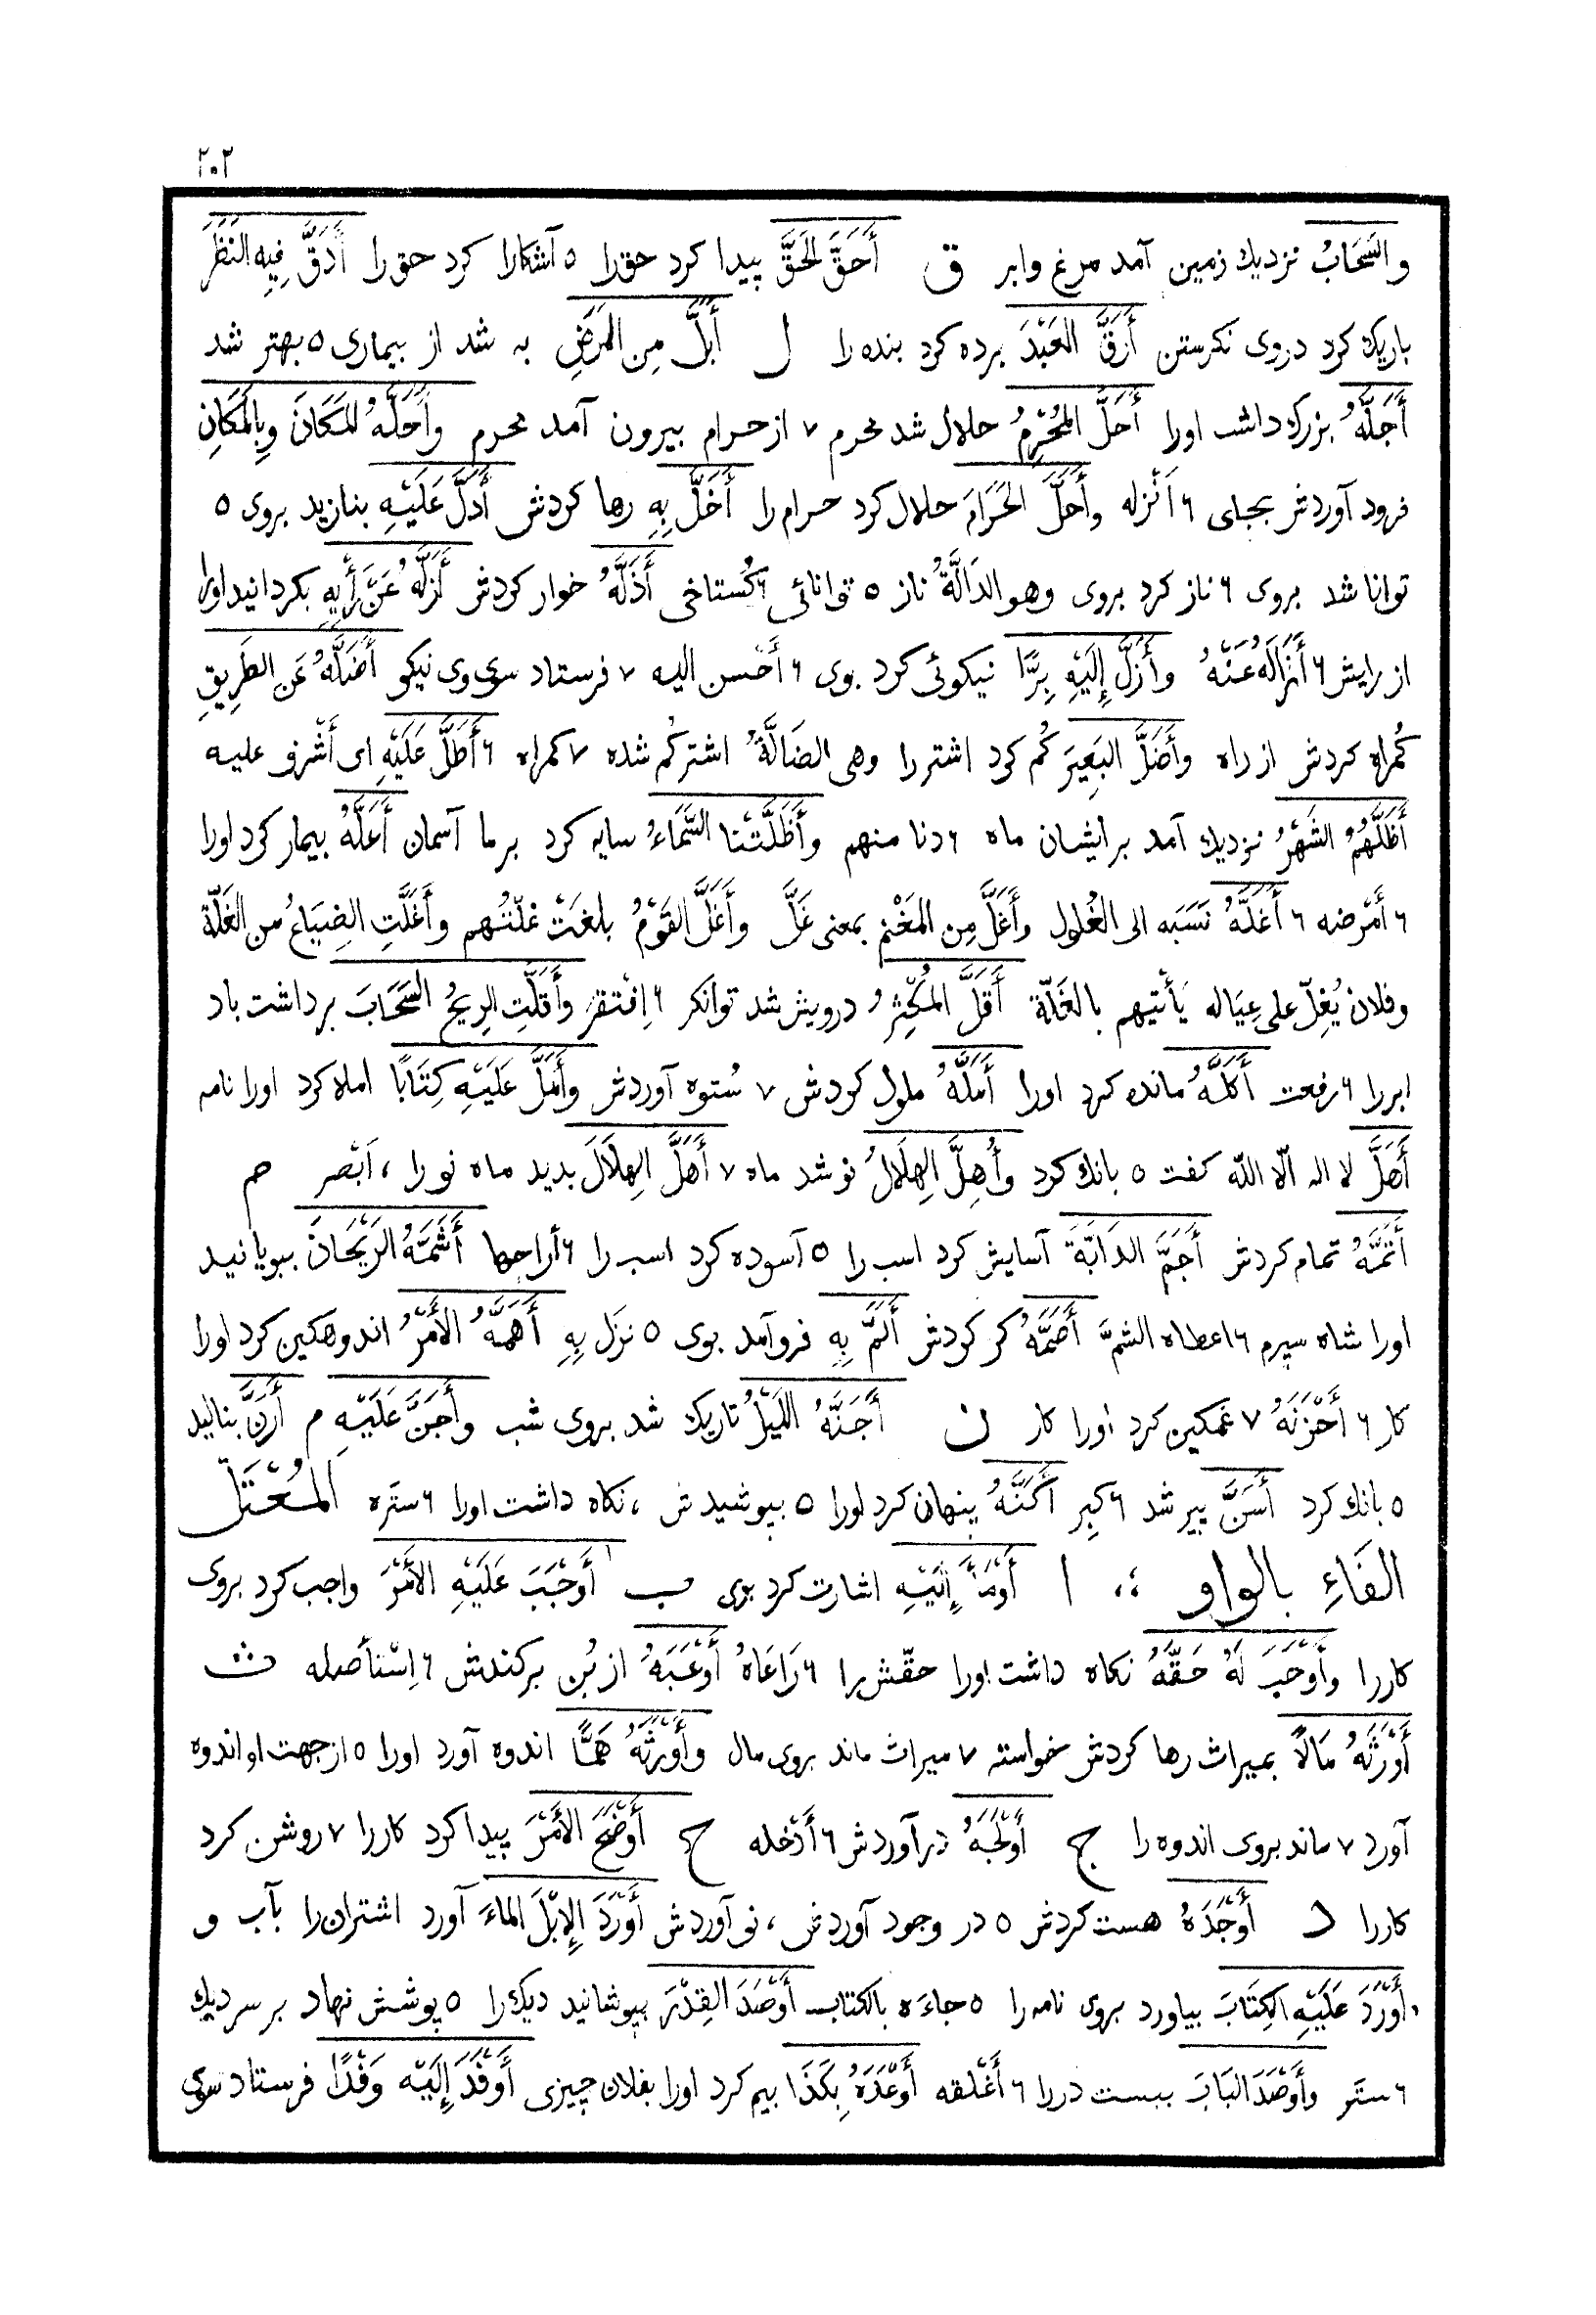 ٢٠٢
والسَّحَابُ نزديك زمين آمد مرغ وابر ق أَحَقَّ الحَقَّ پيدا كرد حق را ٥ آشكارا كرد حق را أَدَقَّ فِيهِ النَظَرَ
باريك كرد دروى نكرستن أَرَقَّ العَبْدَ برده كرد بنده را ل أَبَلَّ مِن المَرَضِ به شد از بيمارى ٥ بهتر شد
أَجَلَّهُ بزرك داشت اورا أَحَلَّ المُحْرِمُ حلال شد محرم ٧ از حرام بيرون آمد محرم وأَحَلَّهُ المَكَانَ وبِالمَكَانِ
فرود آوردش بجاى ٦ اَنْزله وأَحَلَّ الحَرَامَ حلال كرد حرام را أَخَلَّ بِهِ رها كردش أَدَلَّ عَلَيْهِ بنازيد بروى ٥
توانا شد بروى ٦ ناز كرد بروى وهو الدَالَّةُ ناز ٥ توانائى ٦ كُستاخى أَذَلَّهُ خوار كردش أَزَلَّهُ عَنْ رَأْيِهِ بكردانيد اورا
از رايش ٦ أَزَالَهُ عَنْهُ وأَزَلَّ إِلَيْهِ بِرًّا نيكوئى كرد بوى ٦ أَحْسن اليه ٧ فرستاد سوى وى نيكو أَضَلَّهُ عَن الطَرِيقِ
كُمراه كردش از راه وأَضَلَّ البَعِيرَ كُم كرد اشتر را وهى الضَالَّةُ اشتر كُم شده ٧ كمراه ٦ أَطَلَّ عَلَيْهِ اى أَشْرف عليه
أَظَلَّهُمُ الشَهْرُ نزديك آمد بر ايشان ماه ٦ دنا منهم وأَظَلَّتْنا السَّمَاءُ سايه كرد بر ما آسمان أَعَلَّهُ بيمار كرد اورا
٦ أَمْرضه ٦ أَغَلَّهُ نَسَبَه الى الغُلول وأَغَلَّ مِن المَغْنم بمعنى غَلَّ وأَغَلَّ القَوْمُ بلغَتْ غلّتُهم وأَغَلَّتِ الضِيَاعُ من الغَلّة
وفلان يُغِلّ على عِيَاله يَأتيهم بالغَلّة أَقَلَّ المُكْثِرُ درويش شد توانكر ٦ اِفْتقر وأَقَلَّتِ الرِيحُ السَحَابَ برداشت باد
ابررا ٦ رفعت أَكَلَّهُ مانده كرد اورا أَمَلَّهُ ملول كردش ٧ سُتوه آوردش وأَمَلَّ عَلَيْهِ كِتَابًا املا كرد اورا نامه
أَهَلَّ لا اله الّا اللّه كفت ٥ بانك كرد وأُهِلَّ الهِلَالُ نو شد ماه ٧ أَهَلَّ الهِلَالَ بديد ماه نو را ، اَبْصر م
أَتَمَّهُ تمام كردش أَجَمَّ الدَابَّةَ آسايش كرد اسب را ٥ آسوده كرد اسب را ٦ أراحها أَشَمَّهُ الرَيْحَانَ ببويانيد
اورا شاه سپرم ٦ اعطاه الشمَّ أَصَمَّهُ كر كردش أَلَمَّ بِهِ فروآمد بوى ٥ نزَل بِهِ أَهَمَّهُ الأَمْرُ اندوهكين كرد اورا
كار ٦ أَحْزَنَهُ ٧ غمكين كرد اورا كار ن أَجَنَّهُ اللَيْلُ تاريك شد بروى شب وأَجَنَّ عَلَيْهِ م أَرَنَّ بناليد
٥ بانك كرد أَسَنَّ پير شد ٦ كبِر أَكَنَّهُ پنهان كرد اورا ٥ بپوشيدش ، نكاه داشت اورا ٦ ستَره المُعْتَلّ
الفَاءِ بالواو ؛، ا أَوْمَأَ إِلَيْهِ اشارت كرد بوى ب أَوْجَبَ عَلَيْهِ الأَمْرَ واجب كرد بروى
كاررا وأَوْجَبَ لَهُ حَقَّهُ نكاه داشت اورا حقّش را ٦ رَاعَاهُ أَوْعَبَهُ از بُن بركندش ٦ اِسْتأصله ث
أَوْرَثَهُ مَالًا بميراث رها كردش خواسته ٧ ميراث ماند بروى مال وأَوْرَثَهُ هَمًّا اندوه آورد اورا ٥ از جهت او اندوه
آورد ٧ ماند بروى اندوه را ج أَوْلَجَهُ درآوردش ٦ أَدْخله ح أَوْضَحَ الأَمْرَ پيدا كرد كاررا ٧ روشن كرد
كاررا د أَوْجَدَهُ هست كردش ٥ در وجود آوردش ، نو آوردش أَوْرَدَ الإِبْلَ الماءَ آورد اشتران را بآب و
أَوْرَدَ عَلَيْهِ الكِتَابَ بياورد بروى نامه را ٥ جاءَه بالكتاب أَوْصَدَ القِدْرَ بپوشانيد ديك را ٥ پوشش نهاد بر سر ديك
٦ ستَر وأَوْصَدَ البَابَ ببست دررا ٦ أَغْلقه أَوْعَدَهُ بِكَذَا بيم كرد اورا بفلان چيزى أَوْفَدَ إِلَيْه وَفْدًا فرستاد سوى